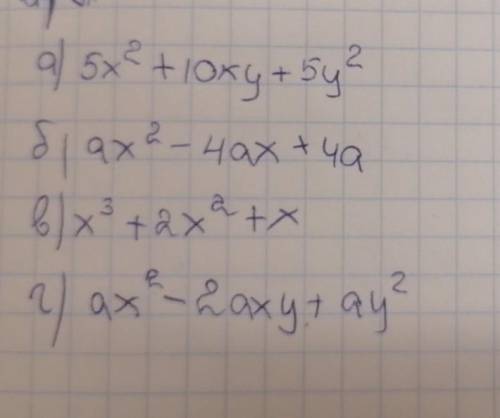 а) 5x² + 10xy + 5y²
б) ax² - 4ax + 4a
в) x³ + 2x² + x
г) ax² - 2axy + ay²